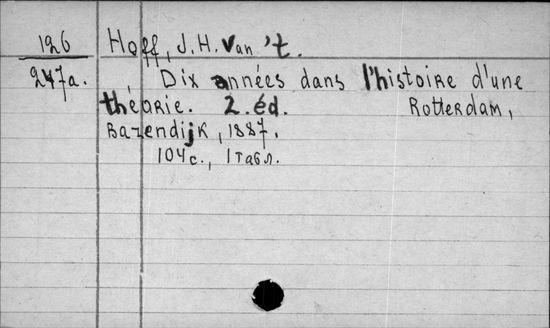 126 Hoff, J.H. Van 't.
247a. Dix années dans l'histoire d'une
théorie. 2. éd. Rotterdam,
Bazendijk, 1887.
104с., 1 табл.